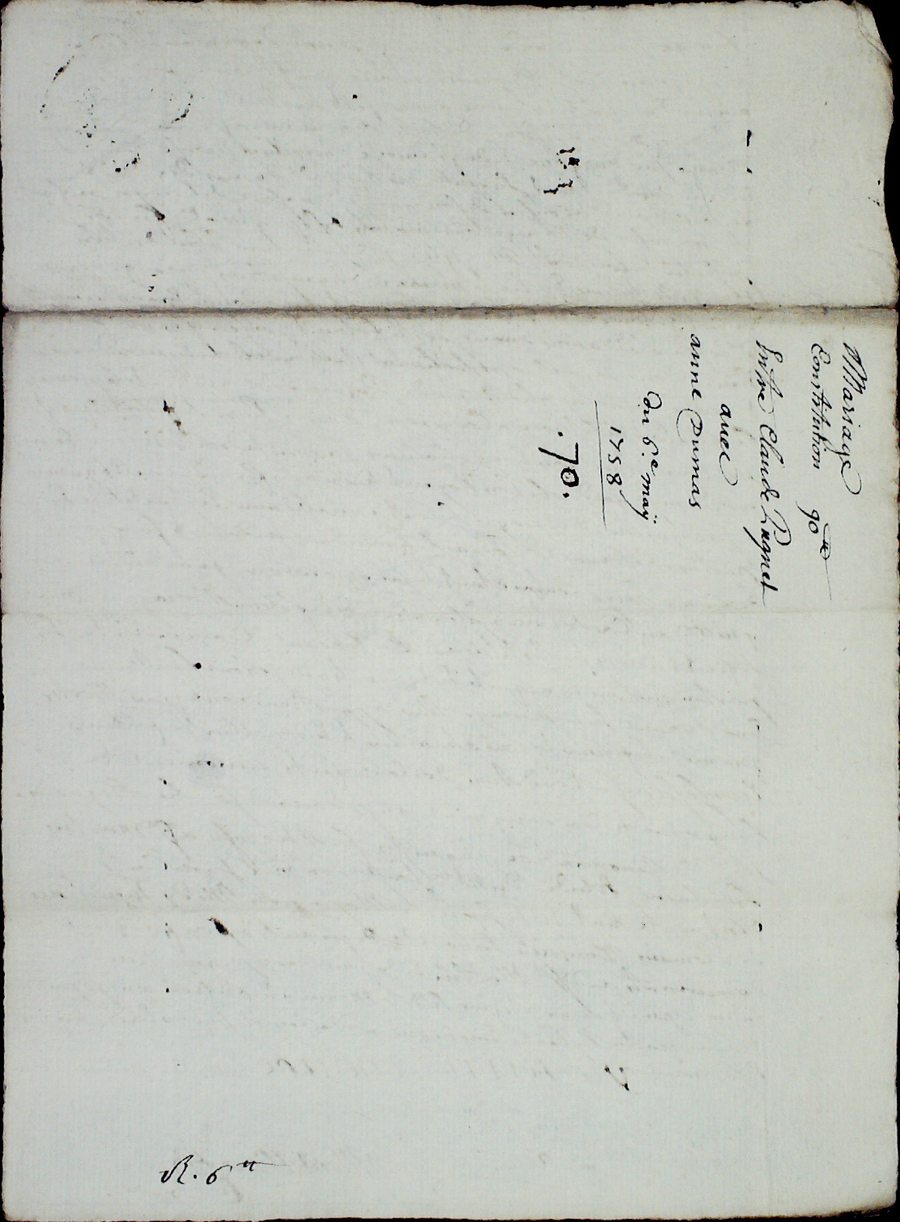 Mariage
Constitution 90 ₶
Entre Claude Pugnet
avec
anne Dumas
du 6.e maÿ
1758
.70.
R. 6 ₶